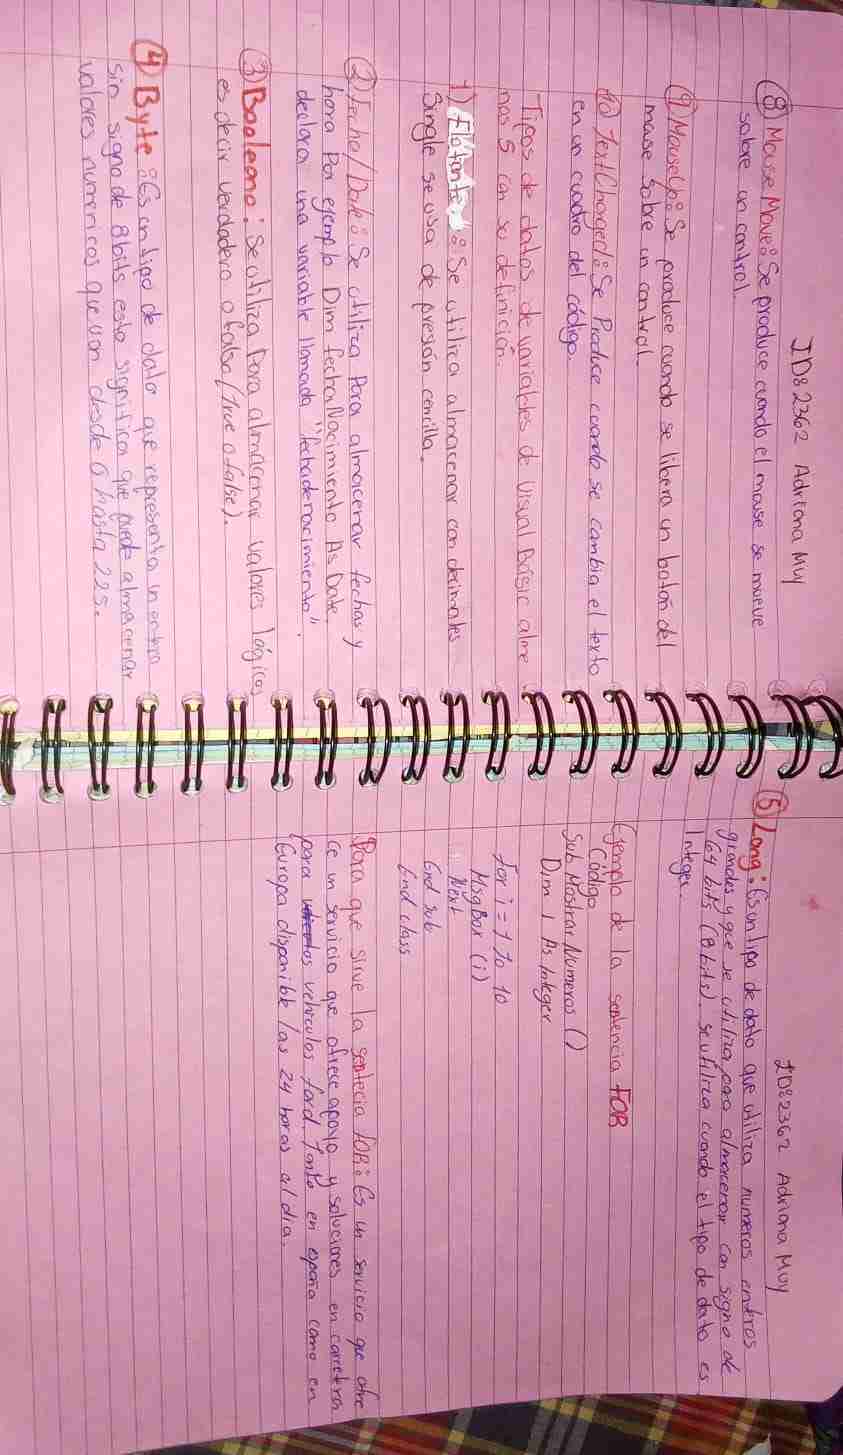 ID: 2362 Adriana Muy
⑧ Mouse Move: Se produce cuando el mouse se mueve
sobre un control.
⑨ MouseUp: Se produce cuando se libera un botón del
mause sobre un control.
⑩ TextChanged: Se Produce cuando se cambia el texto
en un cuadro del código.
Tipos de datos de variables de Visual Basic alme
nos 5 con su definición.
1) Flotante: Se utiliza almacenar con decimales
Single se usa de presón cencilla.
② Fecha/Date: Se utiliza Para almacenar fechas y
hora Por ejemplo Dim fechaNacimiento As Date.
declara una variable llamada "fechadenacimiento".
③ Booleano: Se utiliza Para almacenar valores lógicos
es decir verdadero o falso (True o false).
④ Byte: Es un tipo de dato que representa un entero
sin signo de 8 bits esto significa que puede almacenar
valores numericos que van desde 0 hasta 225.
ID: 2362 Adriana Muy
⑤ Long: Es un tipo de dato que utiliza numeros enteros
grandes y que se utiliza para almacenar con signo de
64 bits (8 bits). se utiliza cuando el tipo de dato es
Integer.
Ejemplo de la sentencia FOR
Código
Sub MostrarNumeros ()
Dim i As Integer
for i = 1 To 10
MsgBox (i)
Next
End sub
End class
Para que sirve la sentecia FOR: Es un servicio que ofre
ce un servicio que ofrece apoyo y soluciones en carretra
para vehiculos ford. Tanto en españa como en
Europa disponible las 24 horas al dia.